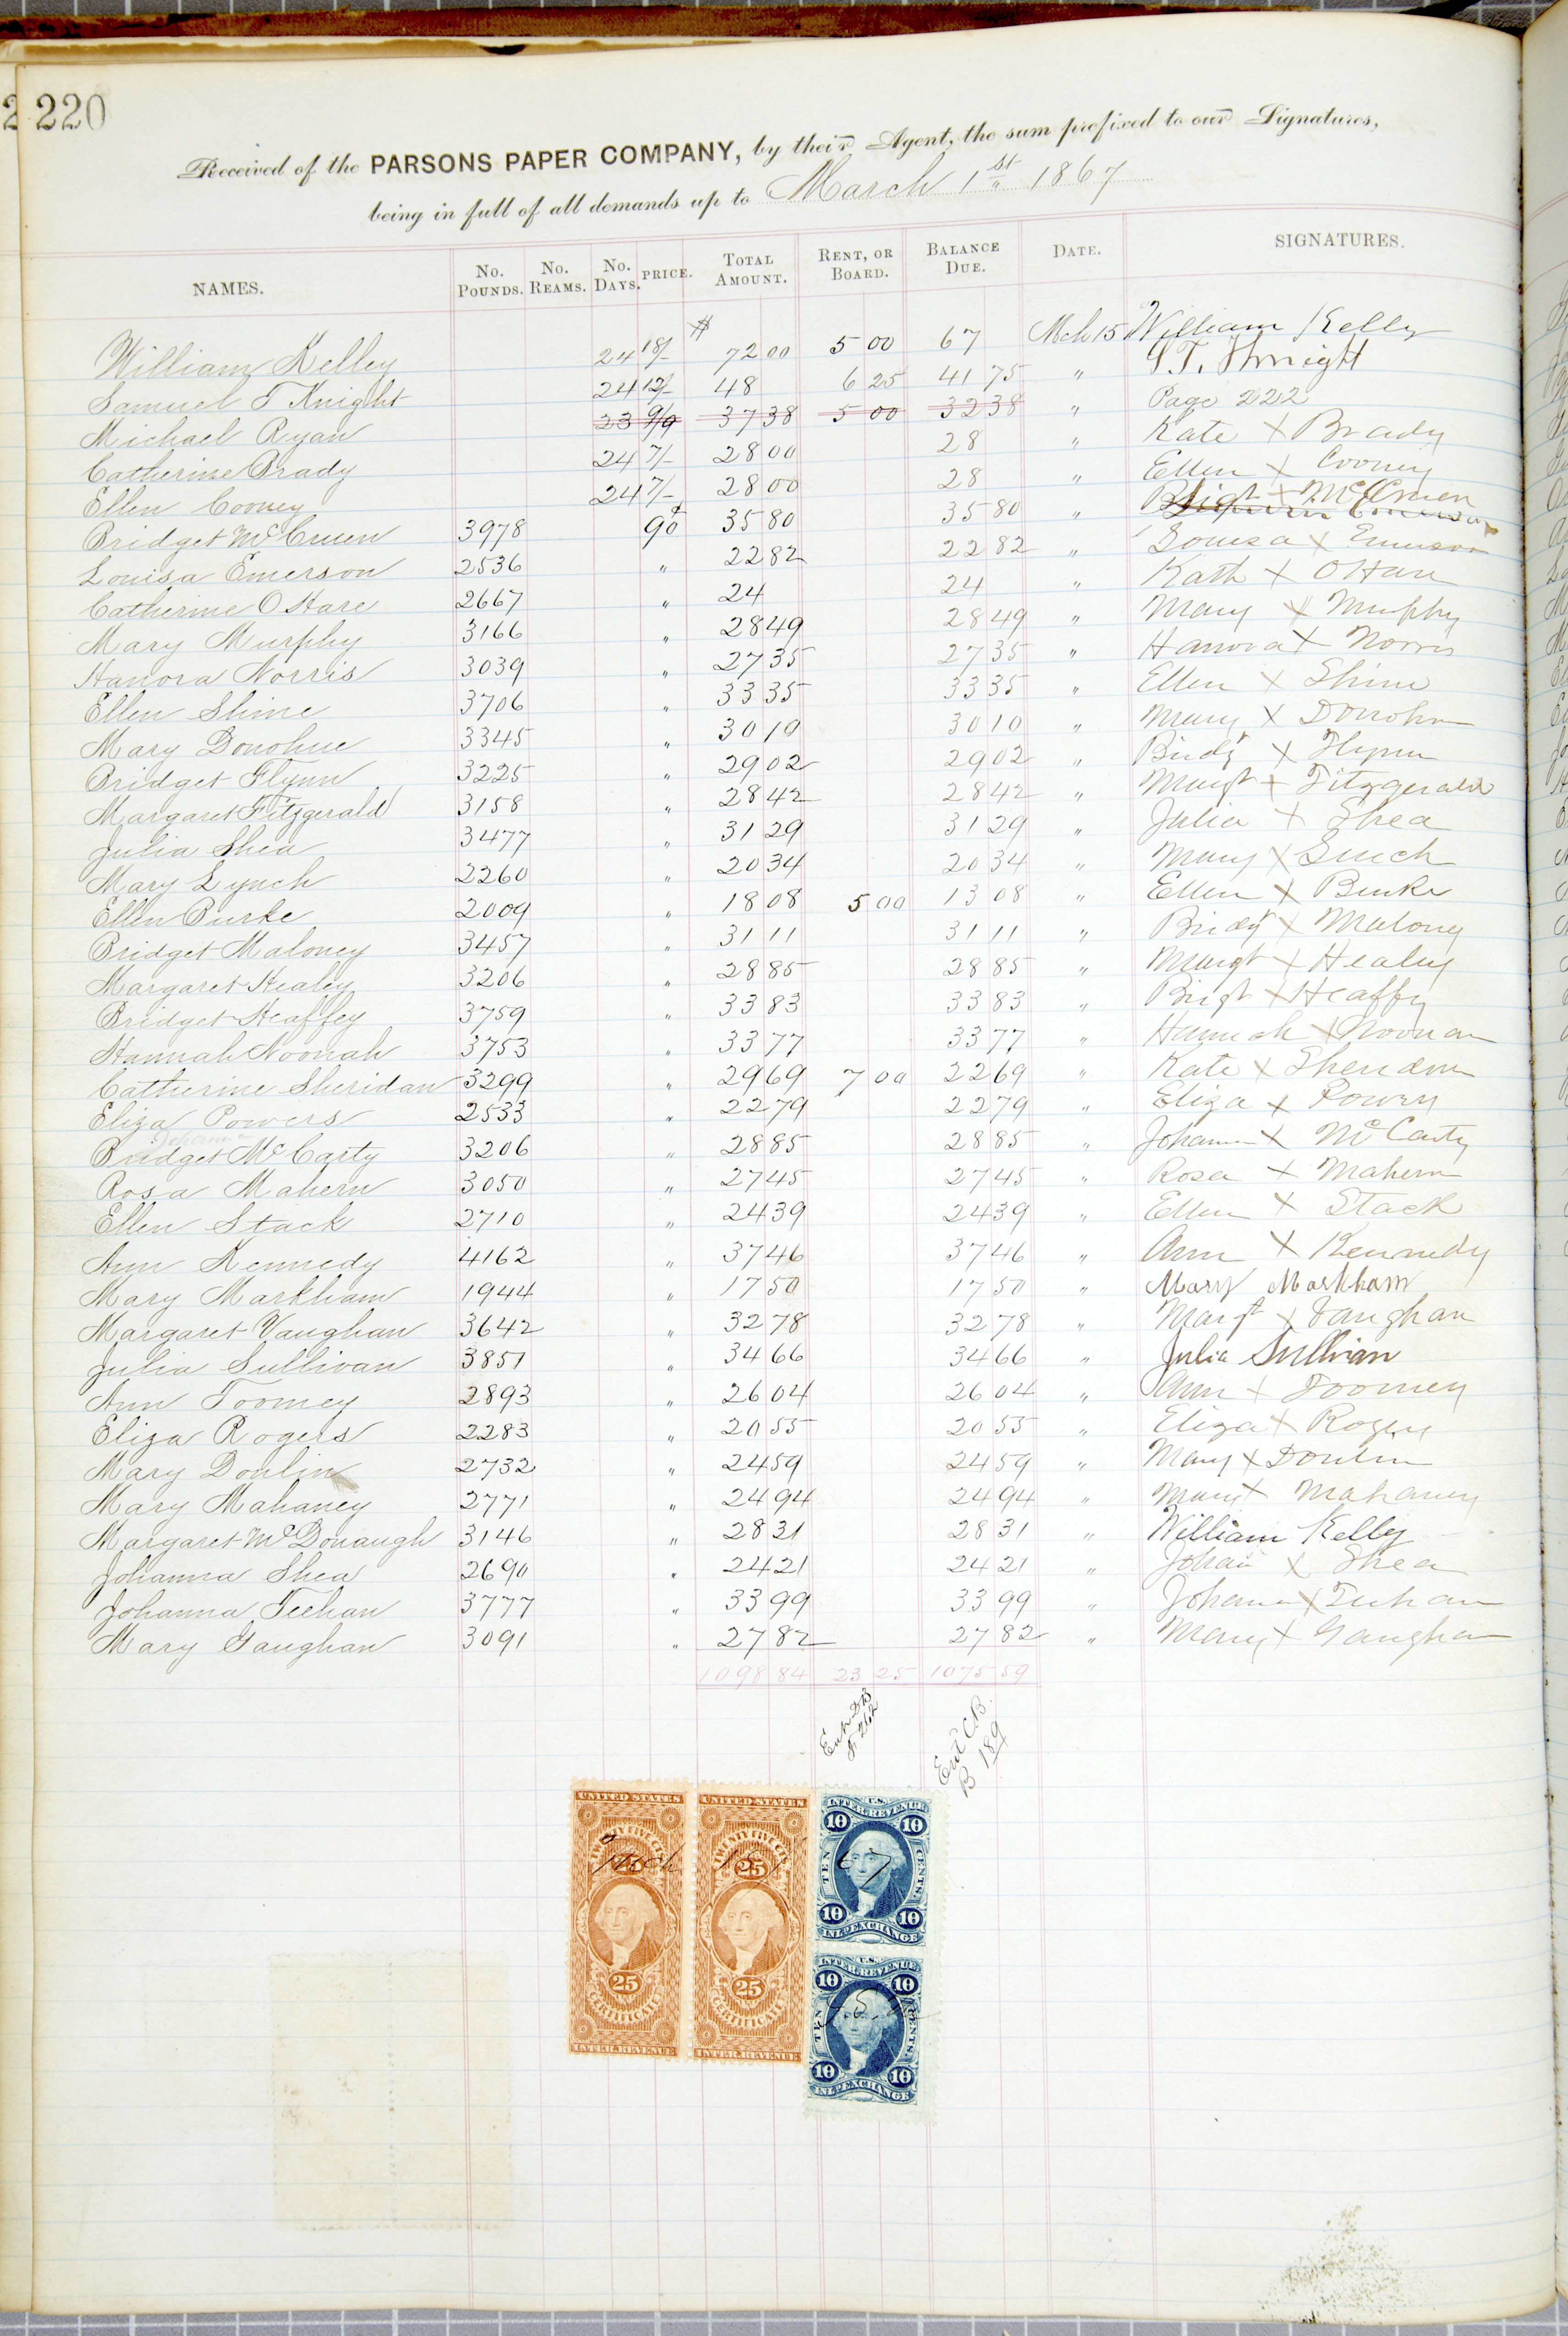 2 220
Received of the PARSONS PAPER COMPANY, by their Agent, the sum prefixed to our Signatures,
being in full of all demands up to March 1st 1867
NAMES. No. POUNDS. No. REAMS. No. DAYS. PRICE. TOTAL AMOUNT. RENT, OR BOARD. BALANCE DUE. DATE. SIGNATURES.
William Kelley 24 18/- $ 72 00 5 00 67 Mch 15 William Kelly
Samuel T Knight 24 12/- 48 6 25 41 75 " S.T. Knight
Michael Ryan 23 9/9 37 38 5 00 32 38 " Page 222
Catherine Brady 24 7/- 28 00 28 " Kate X Brady
Ellen Cooney 24 7/- 28 00 28 " Ellen X Cooney
Bridget McCruen 3978 90 35 80 35 80 " Brigt X McCruen
Louisa Emerson 2536 " 22 82 22 82 " Louisa X Emerson
Catherine O Hare 2667 " 24 24 " Kath X OHare
Mary Murphy 3166 " 28 49 28 49 " Mary X Murphy
Hanora Norris 3039 " 27 35 27 35 " Hanora X Norris
Ellen Shine 3706 " 33 35 33 35 " Ellen X Shine
Mary Donohue 3345 " 30 10 30 10 " Mary X Donohue
Bridget Flynn 3225 " 29 02 29 02 " Bridgt X Flynn
Margaret Fitzgerald 3158 " 28 42 28 42 " Margt X Fitzgerald
Julia Shea 3477 " 31 29 31 29 " Julia X Shea
Mary Lynch 2260 " 20 34 20 34 " Mary X Linch
Ellen Burke 2009 " 18 08 5 00 13 08 " Ellen X Burke
Bridget Maloney 3457 " 31 11 31 11 " Bridgt X Malony
Margaret Healey 3206 " 28 85 28 85 " Margt X Healey
Bridget Heaffey 3759 " 33 83 33 83 " Brigt X Heaffy
Hannah Noonah 3753 " 33 77 33 77 " Hannah X Noonan
Catherine Sheridan 3299 " 29 69 7 00 22 69 " Kate X Sheridan
Eliza Powers 2533 " 22 79 22 79 " Eliza X Powers
Johanna
Bridget McCarty 3206 " 28 85 28 85 " Johanna X McCarty
Rosa Mahern 3050 " 27 45 27 45 " Rosa X Mahern
Ellen Stack 2710 " 24 39 24 39 " Ellen X Stack
Ann Kennedy 4162 " 37 46 37 46 " Ann X Kennedy
Mary Markham 1944 " 17 50 17 50 " Mary Markham
Margaret Vaughan 3642 " 32 78 32 78 " Margt X Vaughan
Julia Sullivan 3851 " 34 66 34 66 " Julia Sullivan
Ann Toomey 2893 " 26 04 26 04 " Ann X Toomey
Eliza Rogers 2283 " 20 55 20 55 " Eliza X Rogers
Mary Donlin 2732 " 24 59 24 59 " Mary X Donlin
Mary Mahaney 2771 " 24 94 24 94 " Mary X Mahaney
Margaret McDonaugh 3146 " 28 31 28 31 " William Kelly
Johanna Shea 2690 " 24 21 24 21 " Johan X Shea
Johanna Teehan 3777 " 33 99 33 99 " Johanna X Teehan
Mary Gaughan 3091 " 27 82 27 82 " Mary X Gaughan
1098 84 23 25 1075 59
Ent DB
F. 262
Ent C.B.
B 189
UNITED STATES TWENTY FIVE CTS. 25 25 CERTIFICATE INTER. REVENUE
UNITED STATES TWENTY FIVE CTS. 25 25 CERTIFICATE INTER. REVENUE
U.S. INTER. REVENUE 10 10 TEN CENTS. 10 10 INL. EXCHANGE
U.S. INTER. REVENUE 10 10 TEN CENTS. 10 10 INL. EXCHANGE
Mch 15/ 67